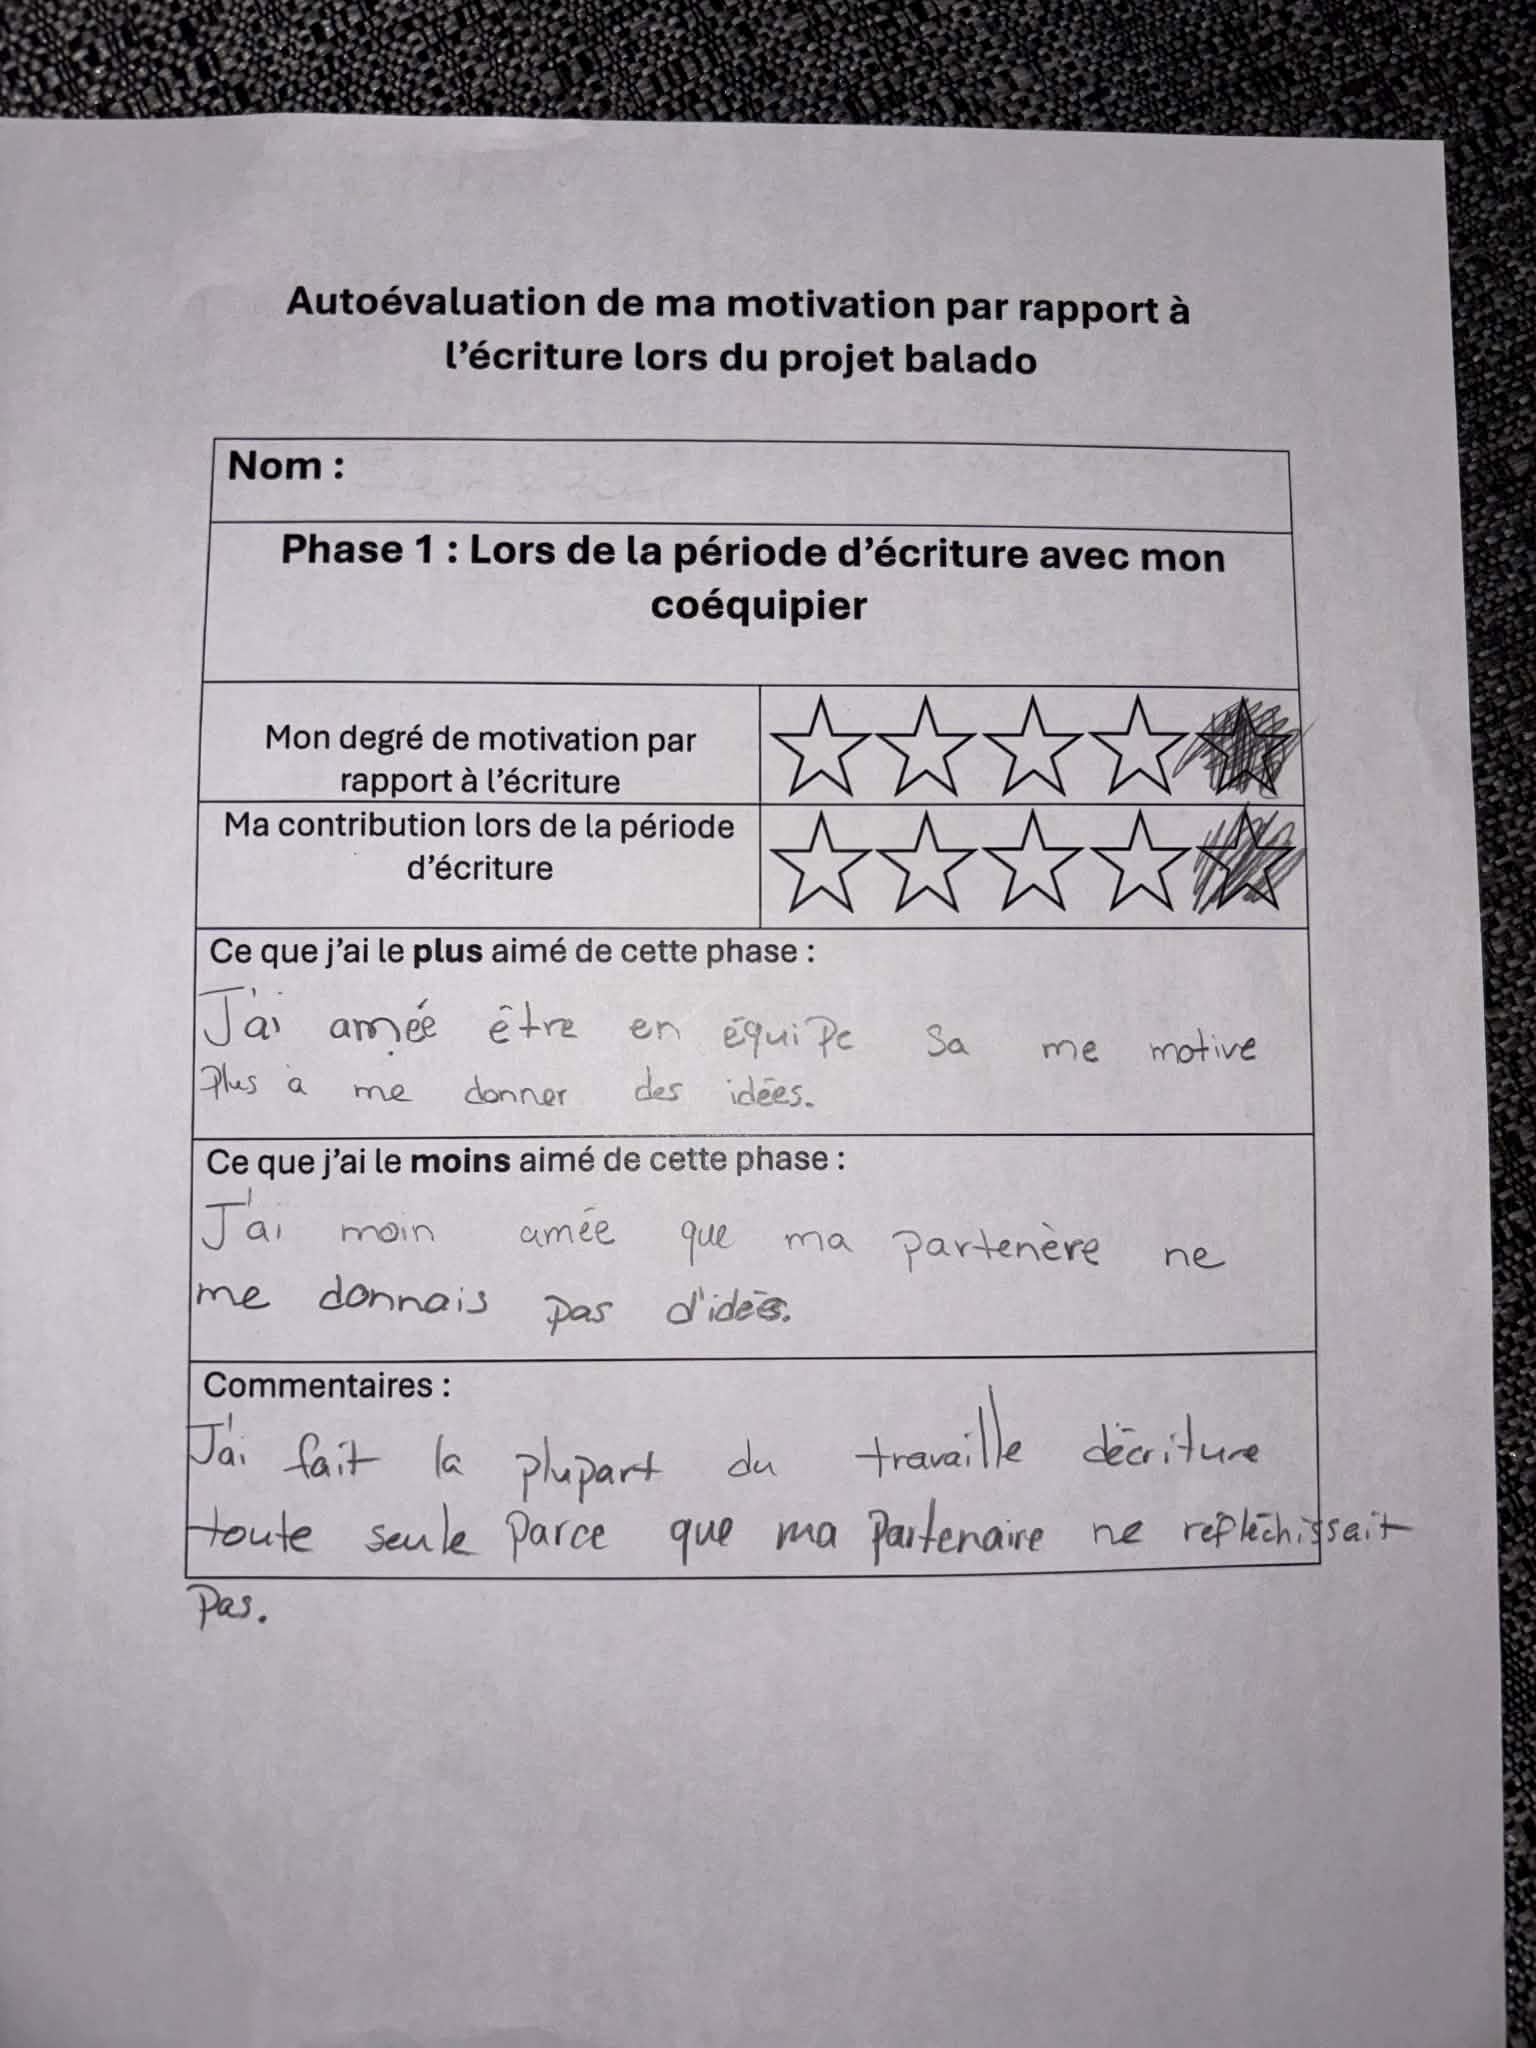 Autoévaluation de ma motivation par rapport à
l'écriture lors du projet balado
Nom :
Phase 1 : Lors de la période d'écriture avec mon
coéquipier
Mon degré de motivation par
rapport à l'écriture
Ma contribution lors de la période
d'écriture
Ce que j'ai le plus aimé de cette phase :
J'ai amée être en équipe sa me motive
plus a me donner des idées.
Ce que j'ai le moins aimé de cette phase :
J'ai moin amée que ma partenère ne
me donnais pas d'idées.
Commentaires :
J'ai fait la plupart du travaille décriture
toute seule parce que ma partenaire ne refléchissait
pas.